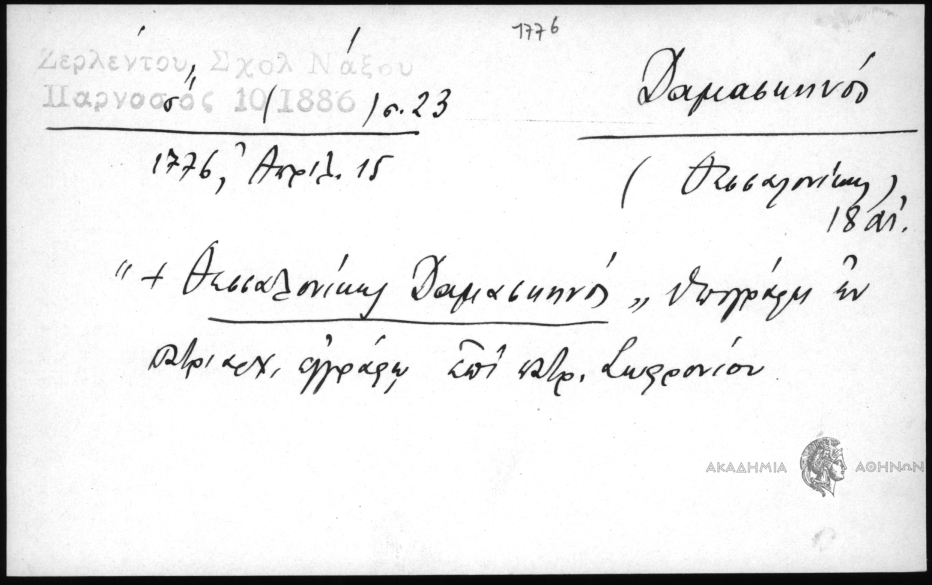 1776
Ζερλέντου, Σχολ Νάξου
Παρνασσός 10/1886
( ) σ. 23
Δαμασκηνός
1776, Ἀπριλ. 15
(Θεσσαλονίκης)
18 αἰ.
"+ Θεσσαλονίκης Δαμασκηνός„ ὑπογράφει ἐν
πατριαρχ. ἐγγράφῳ ἐπὶ πατρ. Σωφρονίου
ΑΚΑΔΗΜΙΑ ΑΘΗΝΩΝ